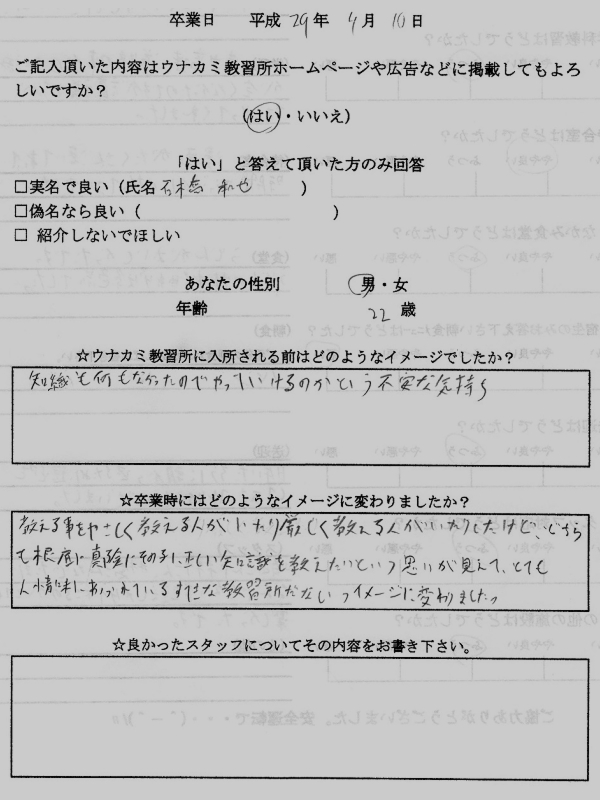 卒業日　平成 29 年 4 月 10 日
ご記入頂いた内容はウナカミ教習所ホームページや広告などに掲載してもよろ
しいですか？
(はい・いいえ)
「はい」と答えて頂いた方のみ回答
□実名で良い（氏名 石橋 和也　）
□偽名なら良い（　）
□ 紹介しないでほしい
あなたの性別　男・女
年齢　22 歳
☆ウナカミ教習所に入所される前はどのようなイメージでしたか？
知識も何もなかったのでやっていけるのかという不安な気持ち
☆卒業時にはどのようなイメージに変わりましたか？
教える事をやさしく教える人がいたり厳しく教える人がいたりしたけど、どちら
も根底に真険に正しい知識を教えたいという思いが見えて、とても
人情にあふれているすてきな教習所だなというイメージに変わりました。
☆良かったスタッフについてその内容をお書き下さい。